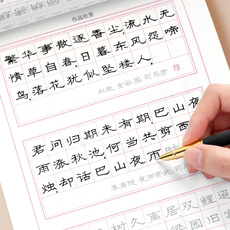 作品欣赏
繁华事散逐香尘,流水无
情草自春,日暮东风怨啼
鸟,落花犹似坠楼人。
杜牧 金谷园
君问归期未有期,巴山夜
雨涨秋池,何当共剪西
烛,却话巴山夜雨
李商隐 夜雨寄北
树久离居双鲤